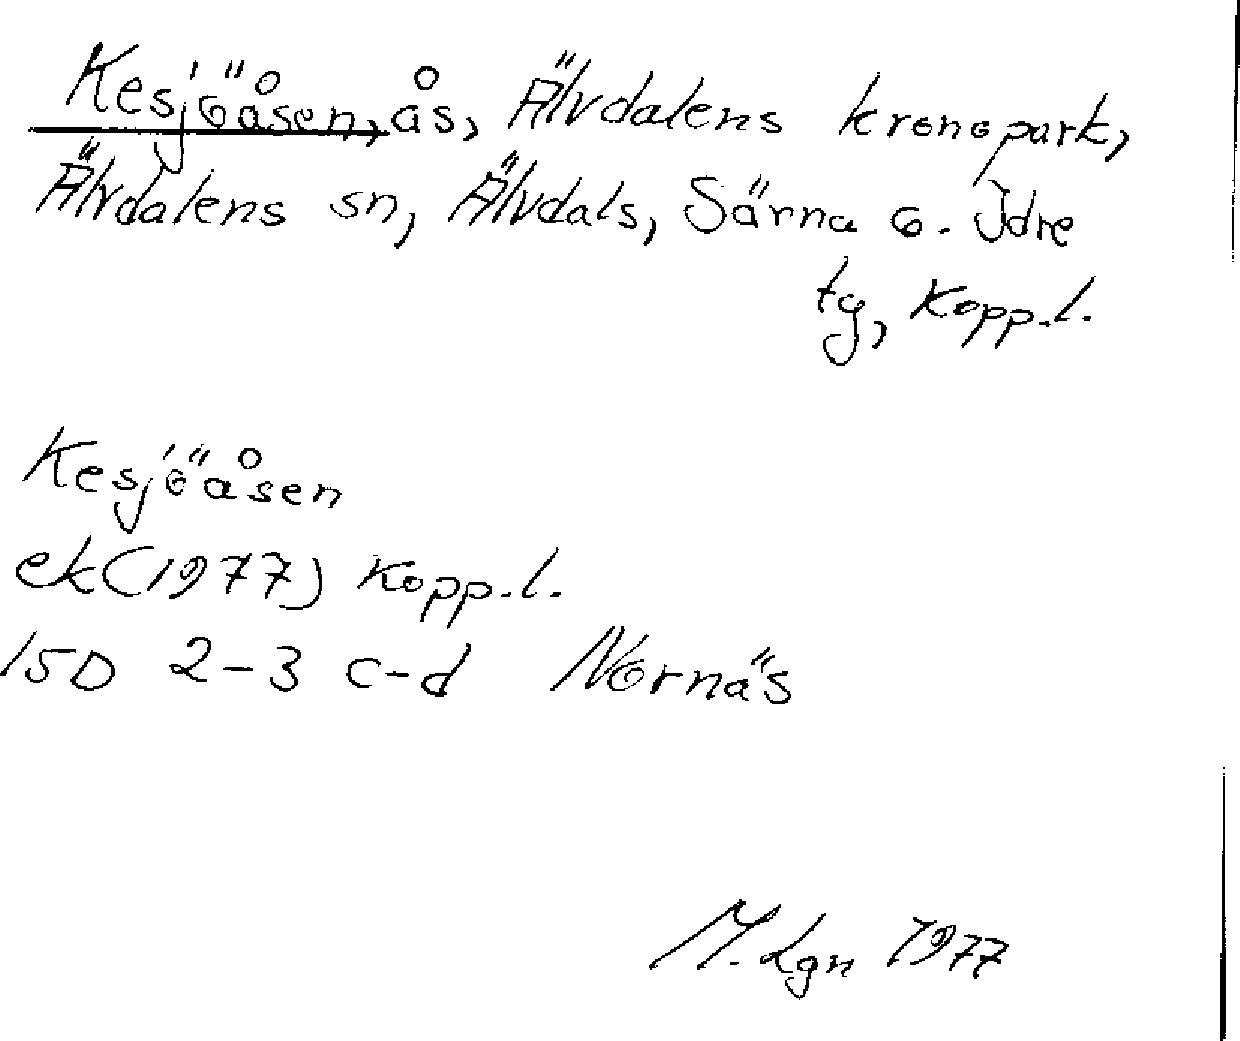 Kesjöåsen, ås, Älvdalens kronopark,
Älvdalens sn, Älvdals, Särna o. Idre
tg, Kopp.l.
Kesjöåsen
ek(1977) Kopp.l.
15D 2-3 c-d Nornäs
M. Lgn 1977